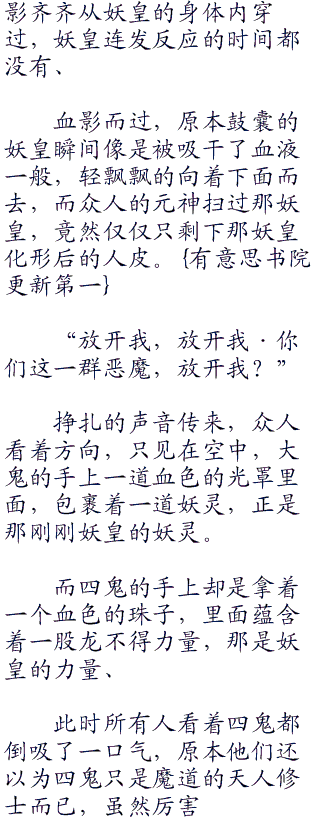 影齐齐从妖皇的身体内穿
过，妖皇连发反应的时间都
没有、
血影而过，原本鼓囊的
妖皇瞬间像是被吸干了血液
一般，轻飘飘的向着下面而
去，而众人的元神扫过那妖
皇，竟然仅仅只剩下那妖皇
化形后的人皮。{有意思书院
更新第一}
“放开我，放开我·你
们这一群恶魔，放开我？”
挣扎的声音传来，众人
看着方向，只见在空中，大
鬼的手上一道血色的光罩里
面，包裹着一道妖灵，正是
那刚刚妖皇的妖灵。
而四鬼的手上却是拿着
一个血色的珠子，里面蕴含
着一股龙不得力量，那是妖
皇的力量、
此时所有人看着四鬼都
倒吸了一口气，原本他们还
以为四鬼只是魔道的天人修
士而已，虽然厉害